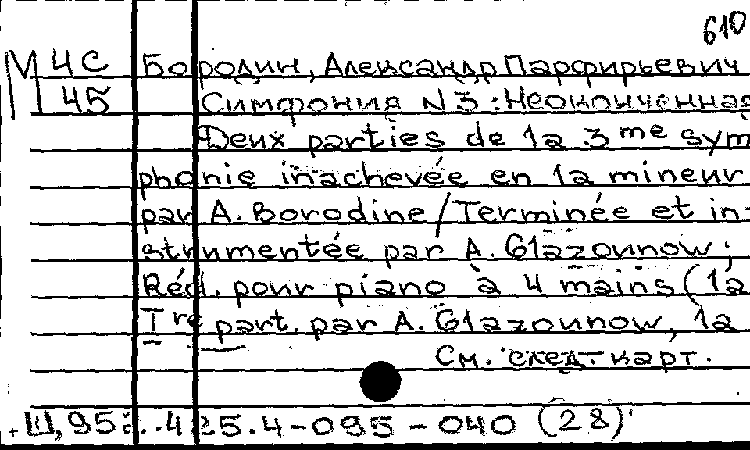 610
М 4С Бородин, Александр Парфирьевич
45 Симфония N3: Неоконченная
Deux parties de la 3me sym
phonie inachevée en la mineur
par A. Borodine/Terminée et in-
strumentée par A. Glazounow;
Réd. pour piano à 4 mains (la
Ire part. par A. Glazounow, la
См. след. карт.
Щ,95..425.4-095-040 (28)